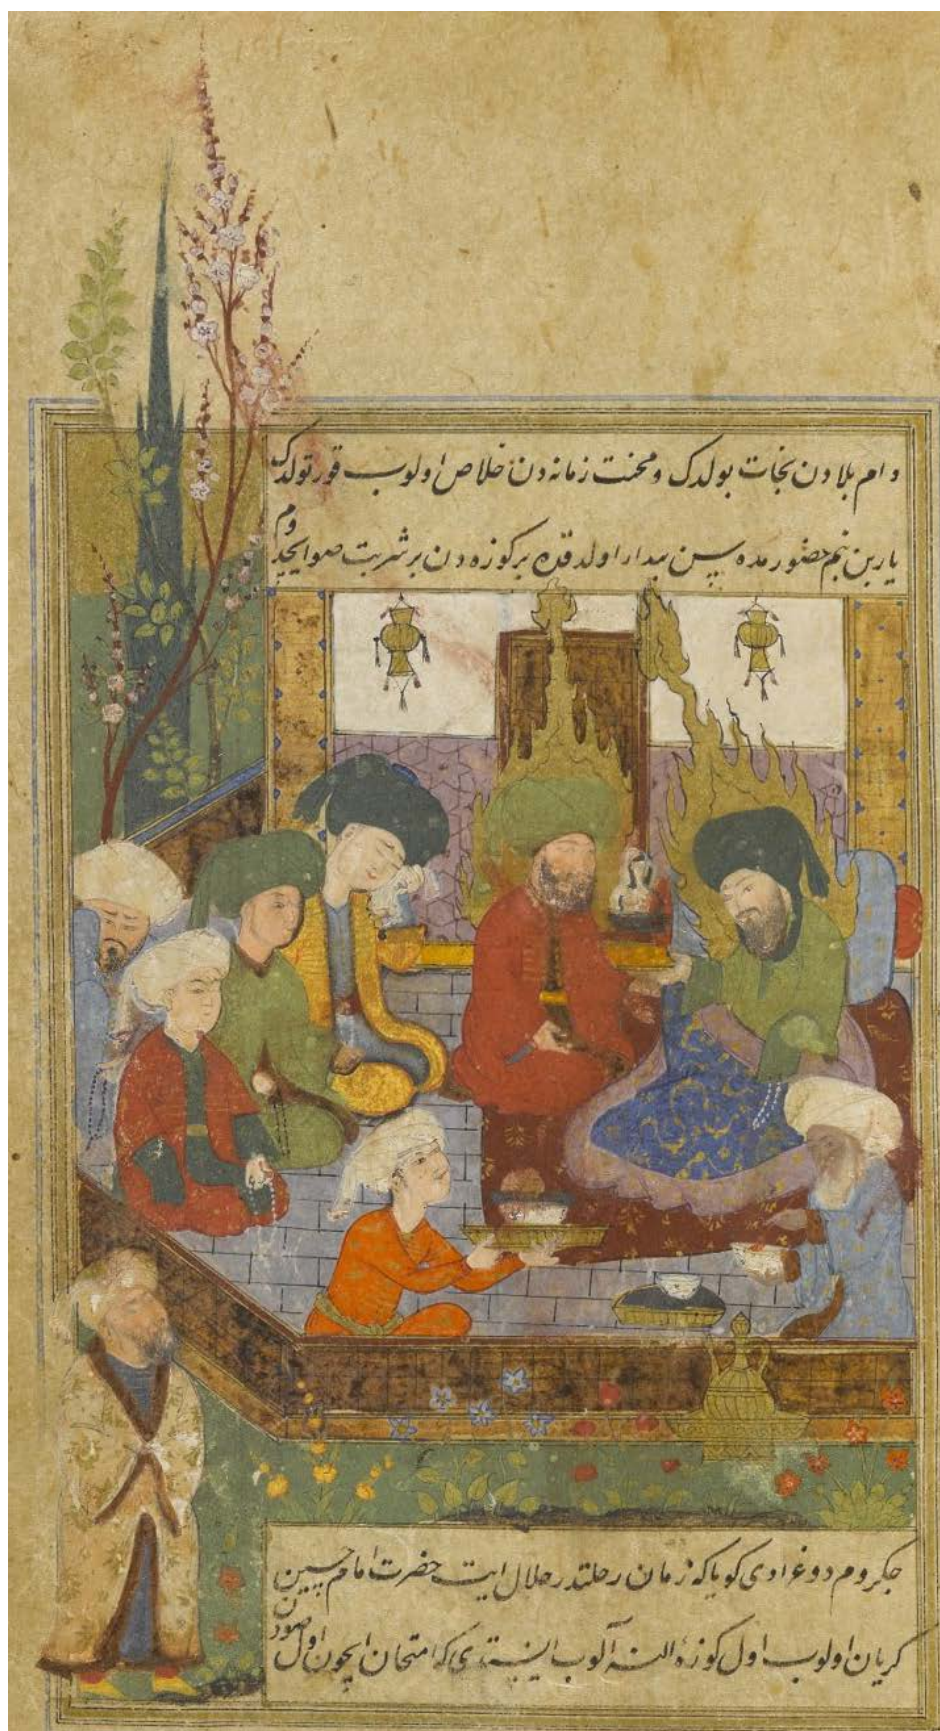 دام بلادن نجات بولدک و محنت زمانه دن خلاص اولوب قورتولدک
یارین بنم حضورمده سن بیدار اولدقده بر کوزه دن بر شربت صو ایچدوم
جکروم دوغرادی کویا که زمان رحلتدر حلال ایت حضرت امام حسین
کریان اولوب اول کوزه الینه آلوب ایستدی که امتحان ایچون اول صودن